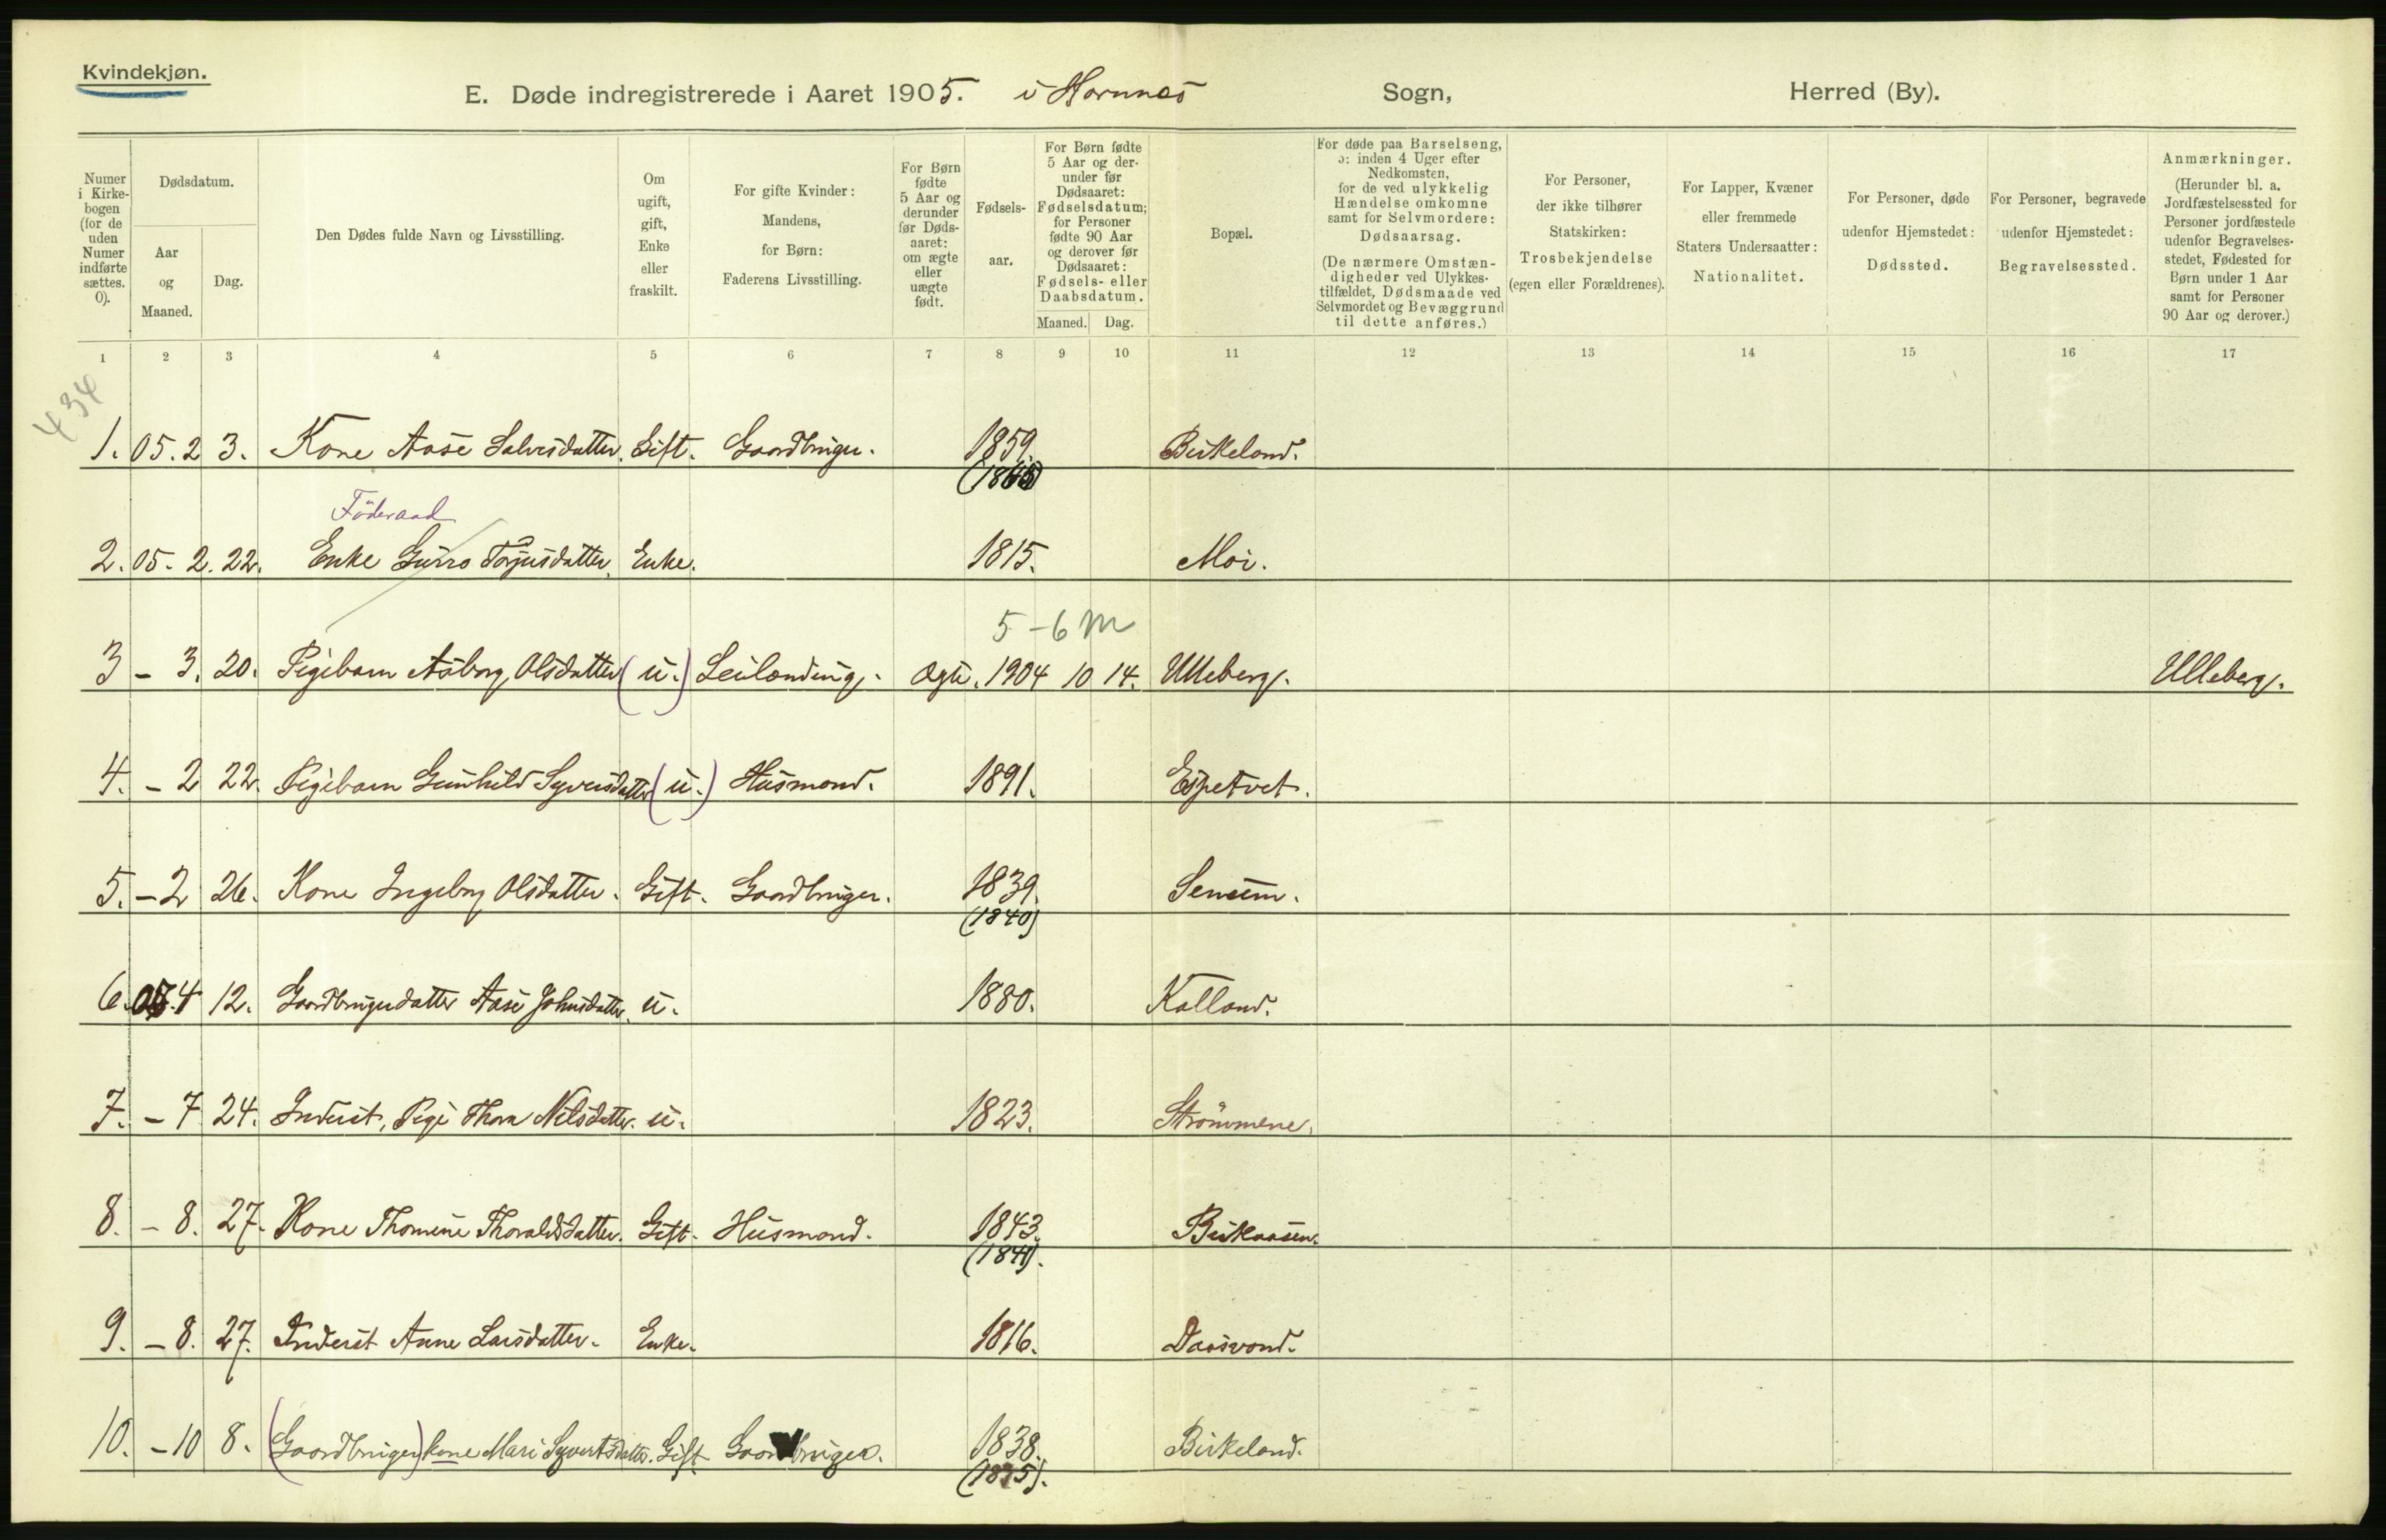 Kvindekjøn.
E. Døde indregistrerede i Aaret 1905. i Hornnes Sogn, Herred (By).
Numer i Kirkebogen (for de uden Numer indførte sættes. 0).
Dødsdatum.
Aar og Maaned.
Dag.
Den Dødes fulde Navn og Livsstilling.
Om ugift, gift, Enke eller fraskilt.
For gifte Kvinder: Mandens, for Børn: Faderens Livsstilling.
For Børn fødte 5 Aar og derunder før Dødsaaret: om ægte eller uægte født.
Fødselsaar.
For Børn fødte 5 Aar og derunder før Dødsaaret: Fødselsdatum; for Personer fødte 90 Aar og derover før Dødsaaret: Fødsels- eller Daabsdatum.
Maaned. Dag.
Bopæl.
For døde paa Barselseng, ɔ: inden 4 Uger efter Nedkomsten, for de ved ulykkelig Hændelse omkomne samt for Selvmordere: Dødsaarsag. (De nærmere Omstændigheder ved Ulykkestilfældet, Dødsmaade ved Selvmordet og Bevæggrund til dette anføres.)
For Personer, der ikke tilhører Statskirken: Trosbekjendelse (egen eller Forældrenes).
For Lapper, Kvæner eller fremmede Staters Undersaatter: Nationalitet.
For Personer, døde udenfor Hjemstedet: Dødssted.
For Personer, begravede udenfor Hjemstedet: Begravelsessted.
Anmærkninger. (Herunder bl. a. Jordfæstelsessted for Personer jordfæstede udenfor Begravelsesstedet, Fødested for Børn under 1 Aar samt for Personer 90 Aar og derover.)
1 2 3 4 5 6 7 8 9 10 11 12 13 14 15 16 17
434
1. 05. 2 3. Kone Aase Salvesdatter. Gift. Gaardbruger. 1859. Birkeland.
Föderaad
2. 05. 2. 22. Enke Gurro Torjusdatter. Enke. 1815. Moi.
5-6 m
3 - 3. 20. Pigebarn Aasborg Olsdatter (u.) Leilænding. ægte. 1904 10 14. Ulleberg. Ulleberg.
4. - 2 22. Pigebarn Gunhild Syversdatter (u.) Husmand. 1891. Espetvet.
5. - 2 26. Kone Ingeborg Olsdatter. Gift. Gaardbruger. 1839. Senum.
(1840)
6. 05. 4 12. Gaardbrugerdatter Aase Johnsdatter. u. 1880. Kalland.
7. - 7 24. Inderst, Pige Thora Nilsdatter. u. 1823. Strømmene.
8. - 8. 27. Kone Thomine Thoraldsdatter. Gift. Husmand. 1843. Birkaasen.
(1841).
9. - 8. 27. Inderst Anne Larsdatter. Enke. 1816. Daasvand.
10. - 10 8. (Gaardbruger) kone Mari Syvertsdatter. Gift Gaardbruger. 1838. Birkeland.
(1835).